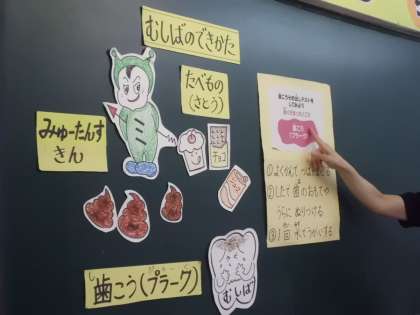 むしばのできかた
たべもの
(さとう)
みゅーたんす
きん
チョコ
歯こう(プラーク)
し
むしば
歯こう
(プラーク)
①よくかんで
②したで歯のおもてや
うらにぬりつける
③
うがいする